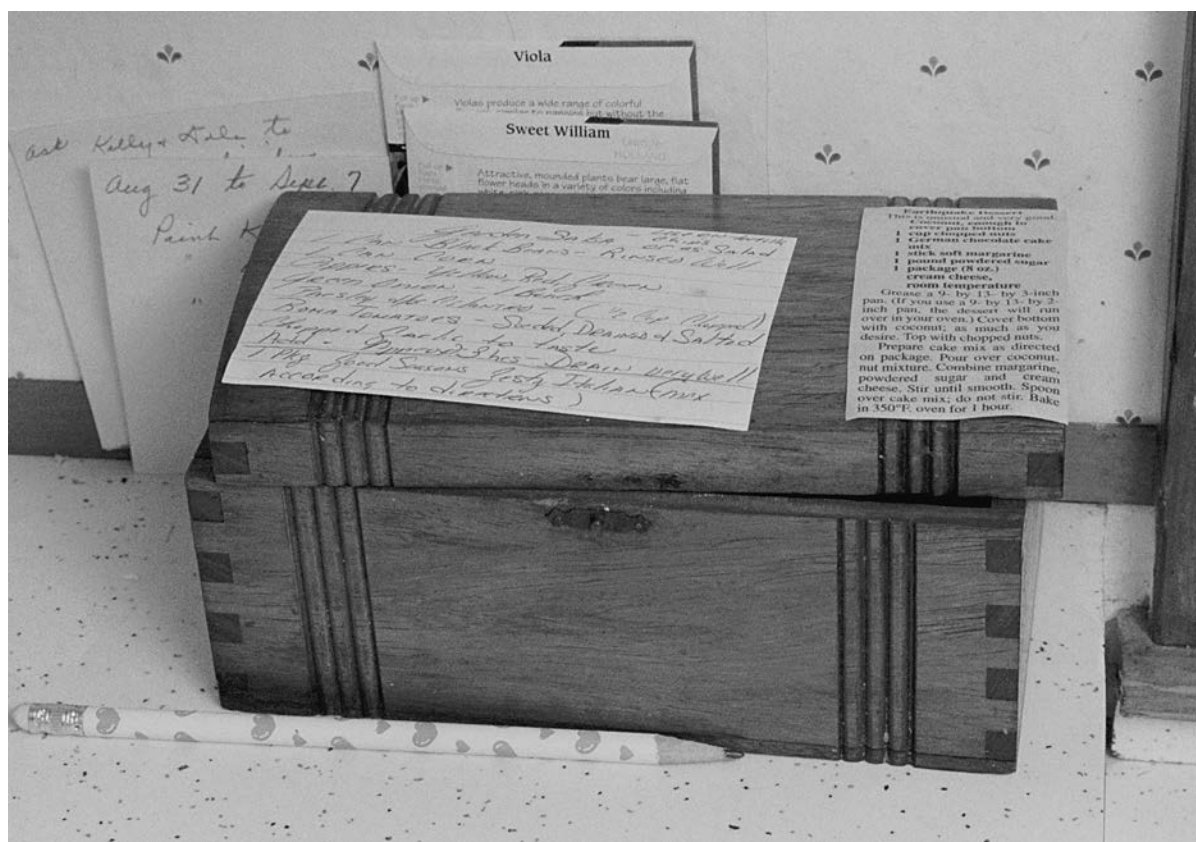 Viola
Violas produce a wide range of colorful
Sweet William
Attractive, mounded plants bear large, flat
flower heads in a variety of colors including
ask Kelly &
Aug 31 to Sept. 7
Paint
or as Salad
Can Corn
Black Beans - Rinsed Well
Peppers - Yellow Red Green
Green Onion - 1 Bunch
Cilantro - (½ Cup Chopped)
Roma Tomatoes - Seeded, Drained & Salted
Chopped Garlic to taste
Drain very well
1 Pkg Good Seasons Zesty Italian (mix
According to directions)
Earthquake Dessert
This is unusual and very good.
Coconut, enough to
cover pan bottom
1 cup chopped nuts
1 German chocolate cake
mix
1 stick soft margarine
1 pound powdered sugar
1 package (8 oz.)
cream cheese,
room temperature
Grease a 9- by 13- by 3-inch
pan. (If you use a 9- by 13- by 2-
inch pan, the dessert will run
over in your oven.) Cover bottom
with coconut; as much as you
desire. Top with chopped nuts.
Prepare cake mix as directed
on package. Pour over coconut-
nut mixture. Combine margarine,
powdered sugar and cream
cheese. Stir until smooth. Spoon
over cake mix; do not stir. Bake
in 350°F. oven for 1 hour.